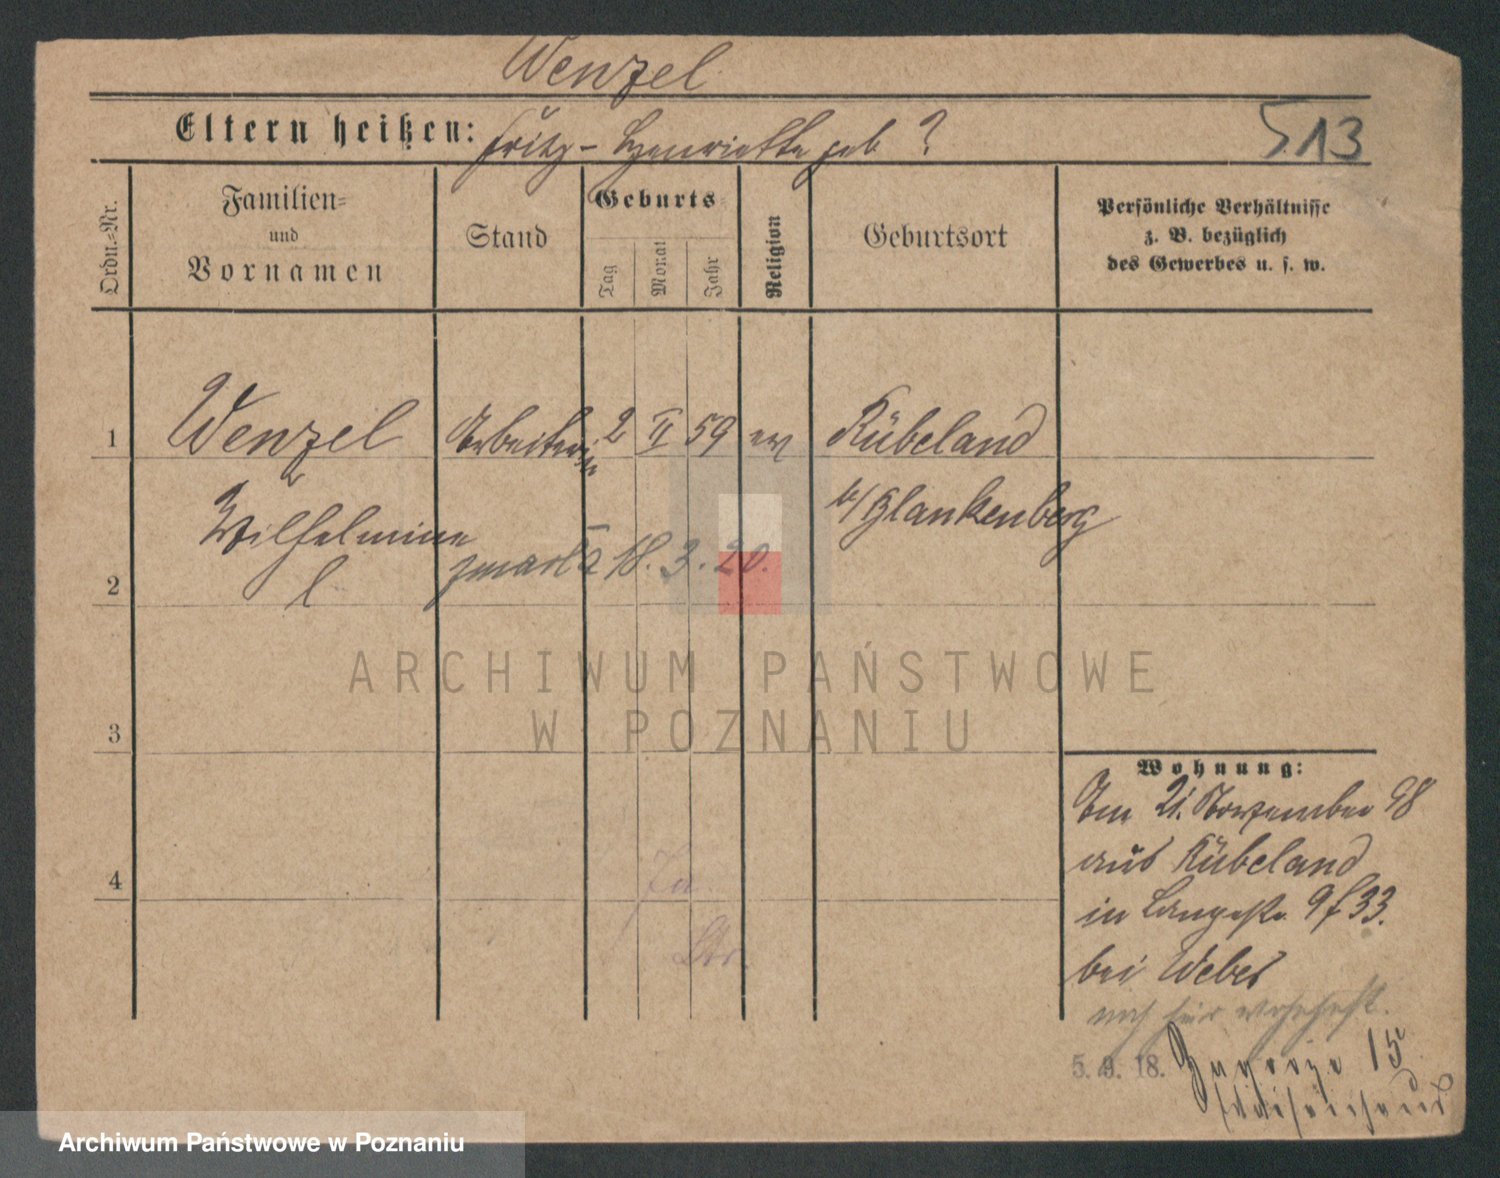 Wenzel
Eltern heißen: Fritz - Henriette geb ?
513
Ordn.-Nr.
Familien-
und
Vornamen
Stand
Geburts-
Tag
Monat
Jahr
Religion
Geburtsort
Persönliche Verhältnisse
z. B. bezüglich
des Gewerbes u. s. w.
1
Wenzel
Arbeiterin
2 II 59
ev
Rübeland
b/Blankenberg
Wilhelmine
l.
2
18. 3. 20.
ARCHIWUM PAŃSTWOWE
W POZNANIU
3
4
Wohnung:
Am 21. November 98
aus Rübeland
in Langestr. 9 f 33.
bei Weber
noch hier wohnhaft.
5. 9. 18.
15
Archiwum Państwowe w Poznaniu